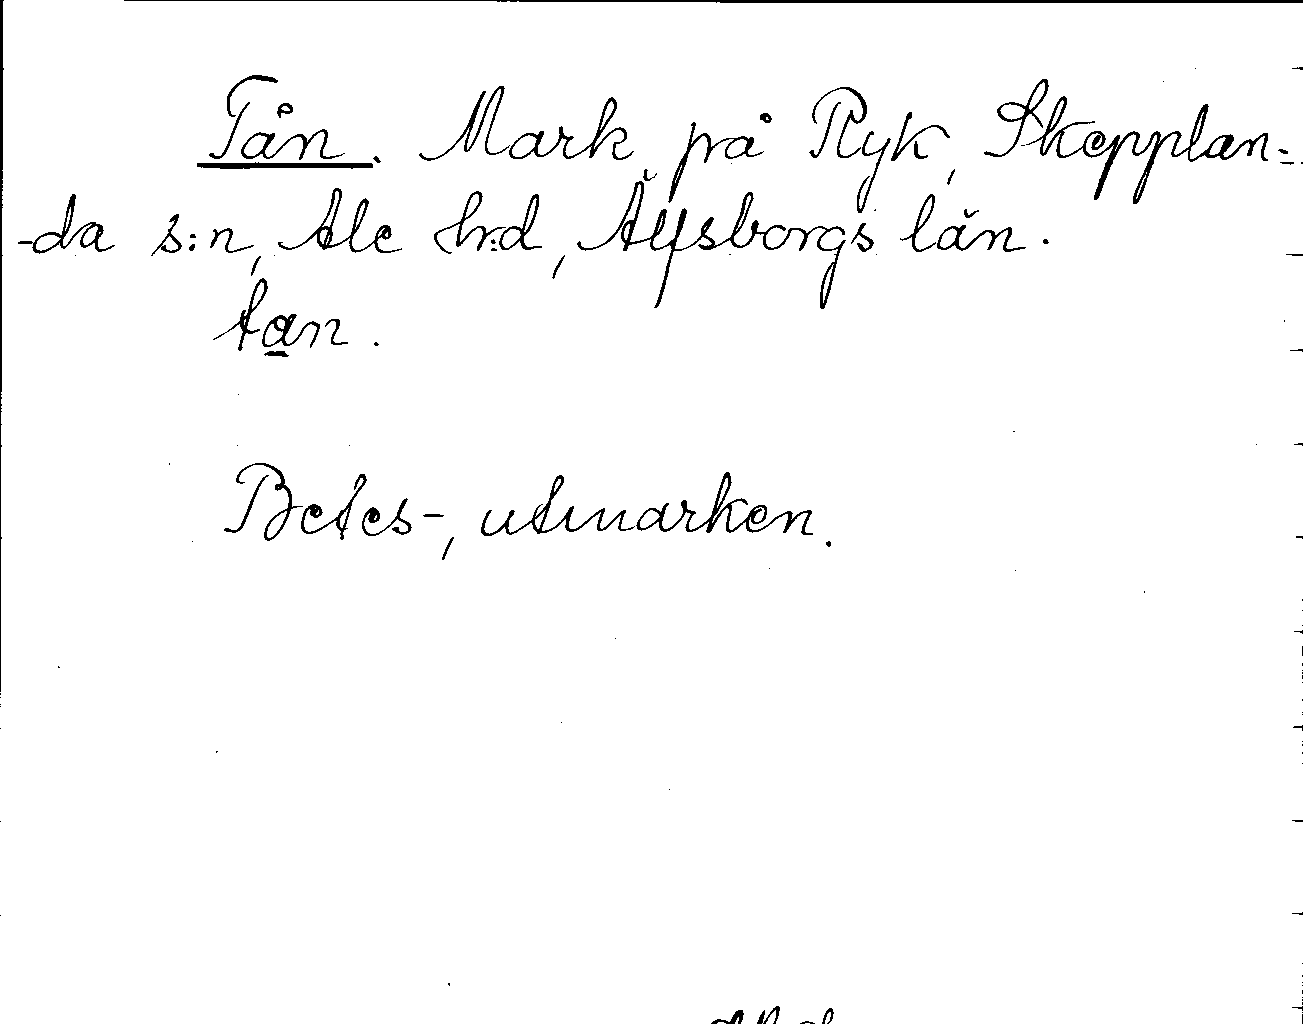 Tån. Mark på Ryk, Skepplan-
-da s:n, Ale hrd, Älfsborgs län.
tan.
Betes-, utmarken.